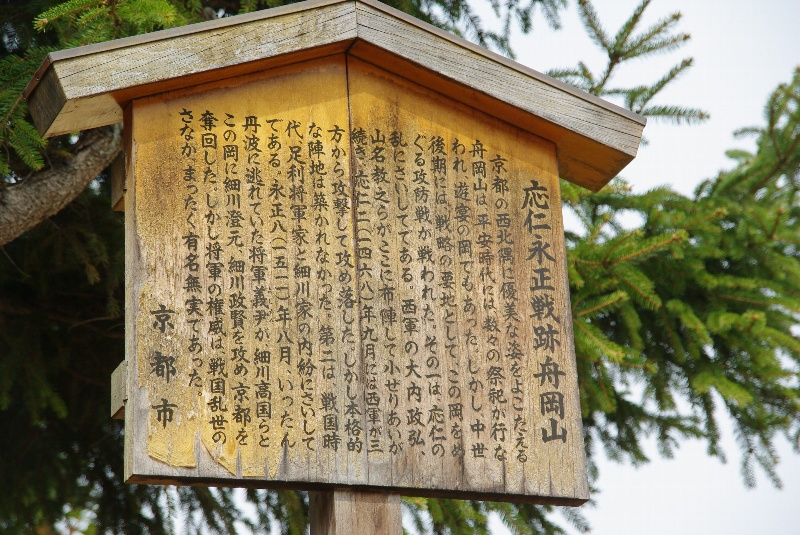 応仁永正戦跡舟岡山
京都の西北隅に優美な姿をよこたえる
舟岡山は平安時代には、数々の祭祀が行な
われ、遊宴の岡でもあった。しかし、中世
後期には、戦略の要地として、この岡をめ
ぐる攻防戦が戦われた。その一は、応仁の
乱にさいしてである。西軍の大内政弘、
山名教之らがここに布陣して小ぜりあいが
続き、応仁二(一四六八)年九月には西軍が三
方から攻撃して攻め落した。しかし本格的
な陣地は築かれなかった。第二は、戦国時
代、足利将軍家と細川家の内紛にさいして
である。永正八(一五一一)年八月、いったん
丹波に逃れていた将軍義尹が、細川高国らと
この岡に細川澄元、細川政賢を攻め、京都を
奪回した。しかし将軍の権威は、戦国乱世の
さなか、まったく有名無実であった。
京都市